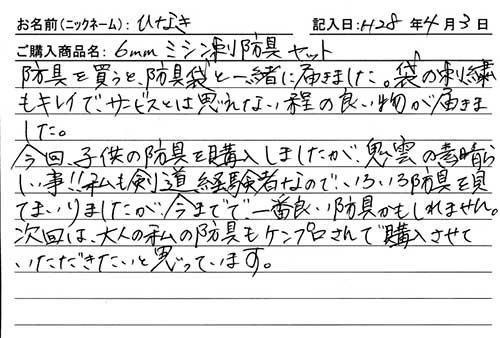 お名前(ニックネーム): ひなき 記入日:H28 年 4 月 3 日
ご購入商品名: 6mm ミシン刺防具セット
防具を買うと、防具袋と一緒に届きました。袋の刺繍
もキレイで、サービスとは思えない程の良い物が届きま
した。
今回、子供の防具を購入しましたが、鬼雲の素晴ら
しい事!!私も剣道経験者なので、いろいろ防具を見
てまいりましたが、今までで、一番良い防具かもしれません。
次回は、大人の私の防具もケンプロさんで購入させて
いただきたいと思っています。